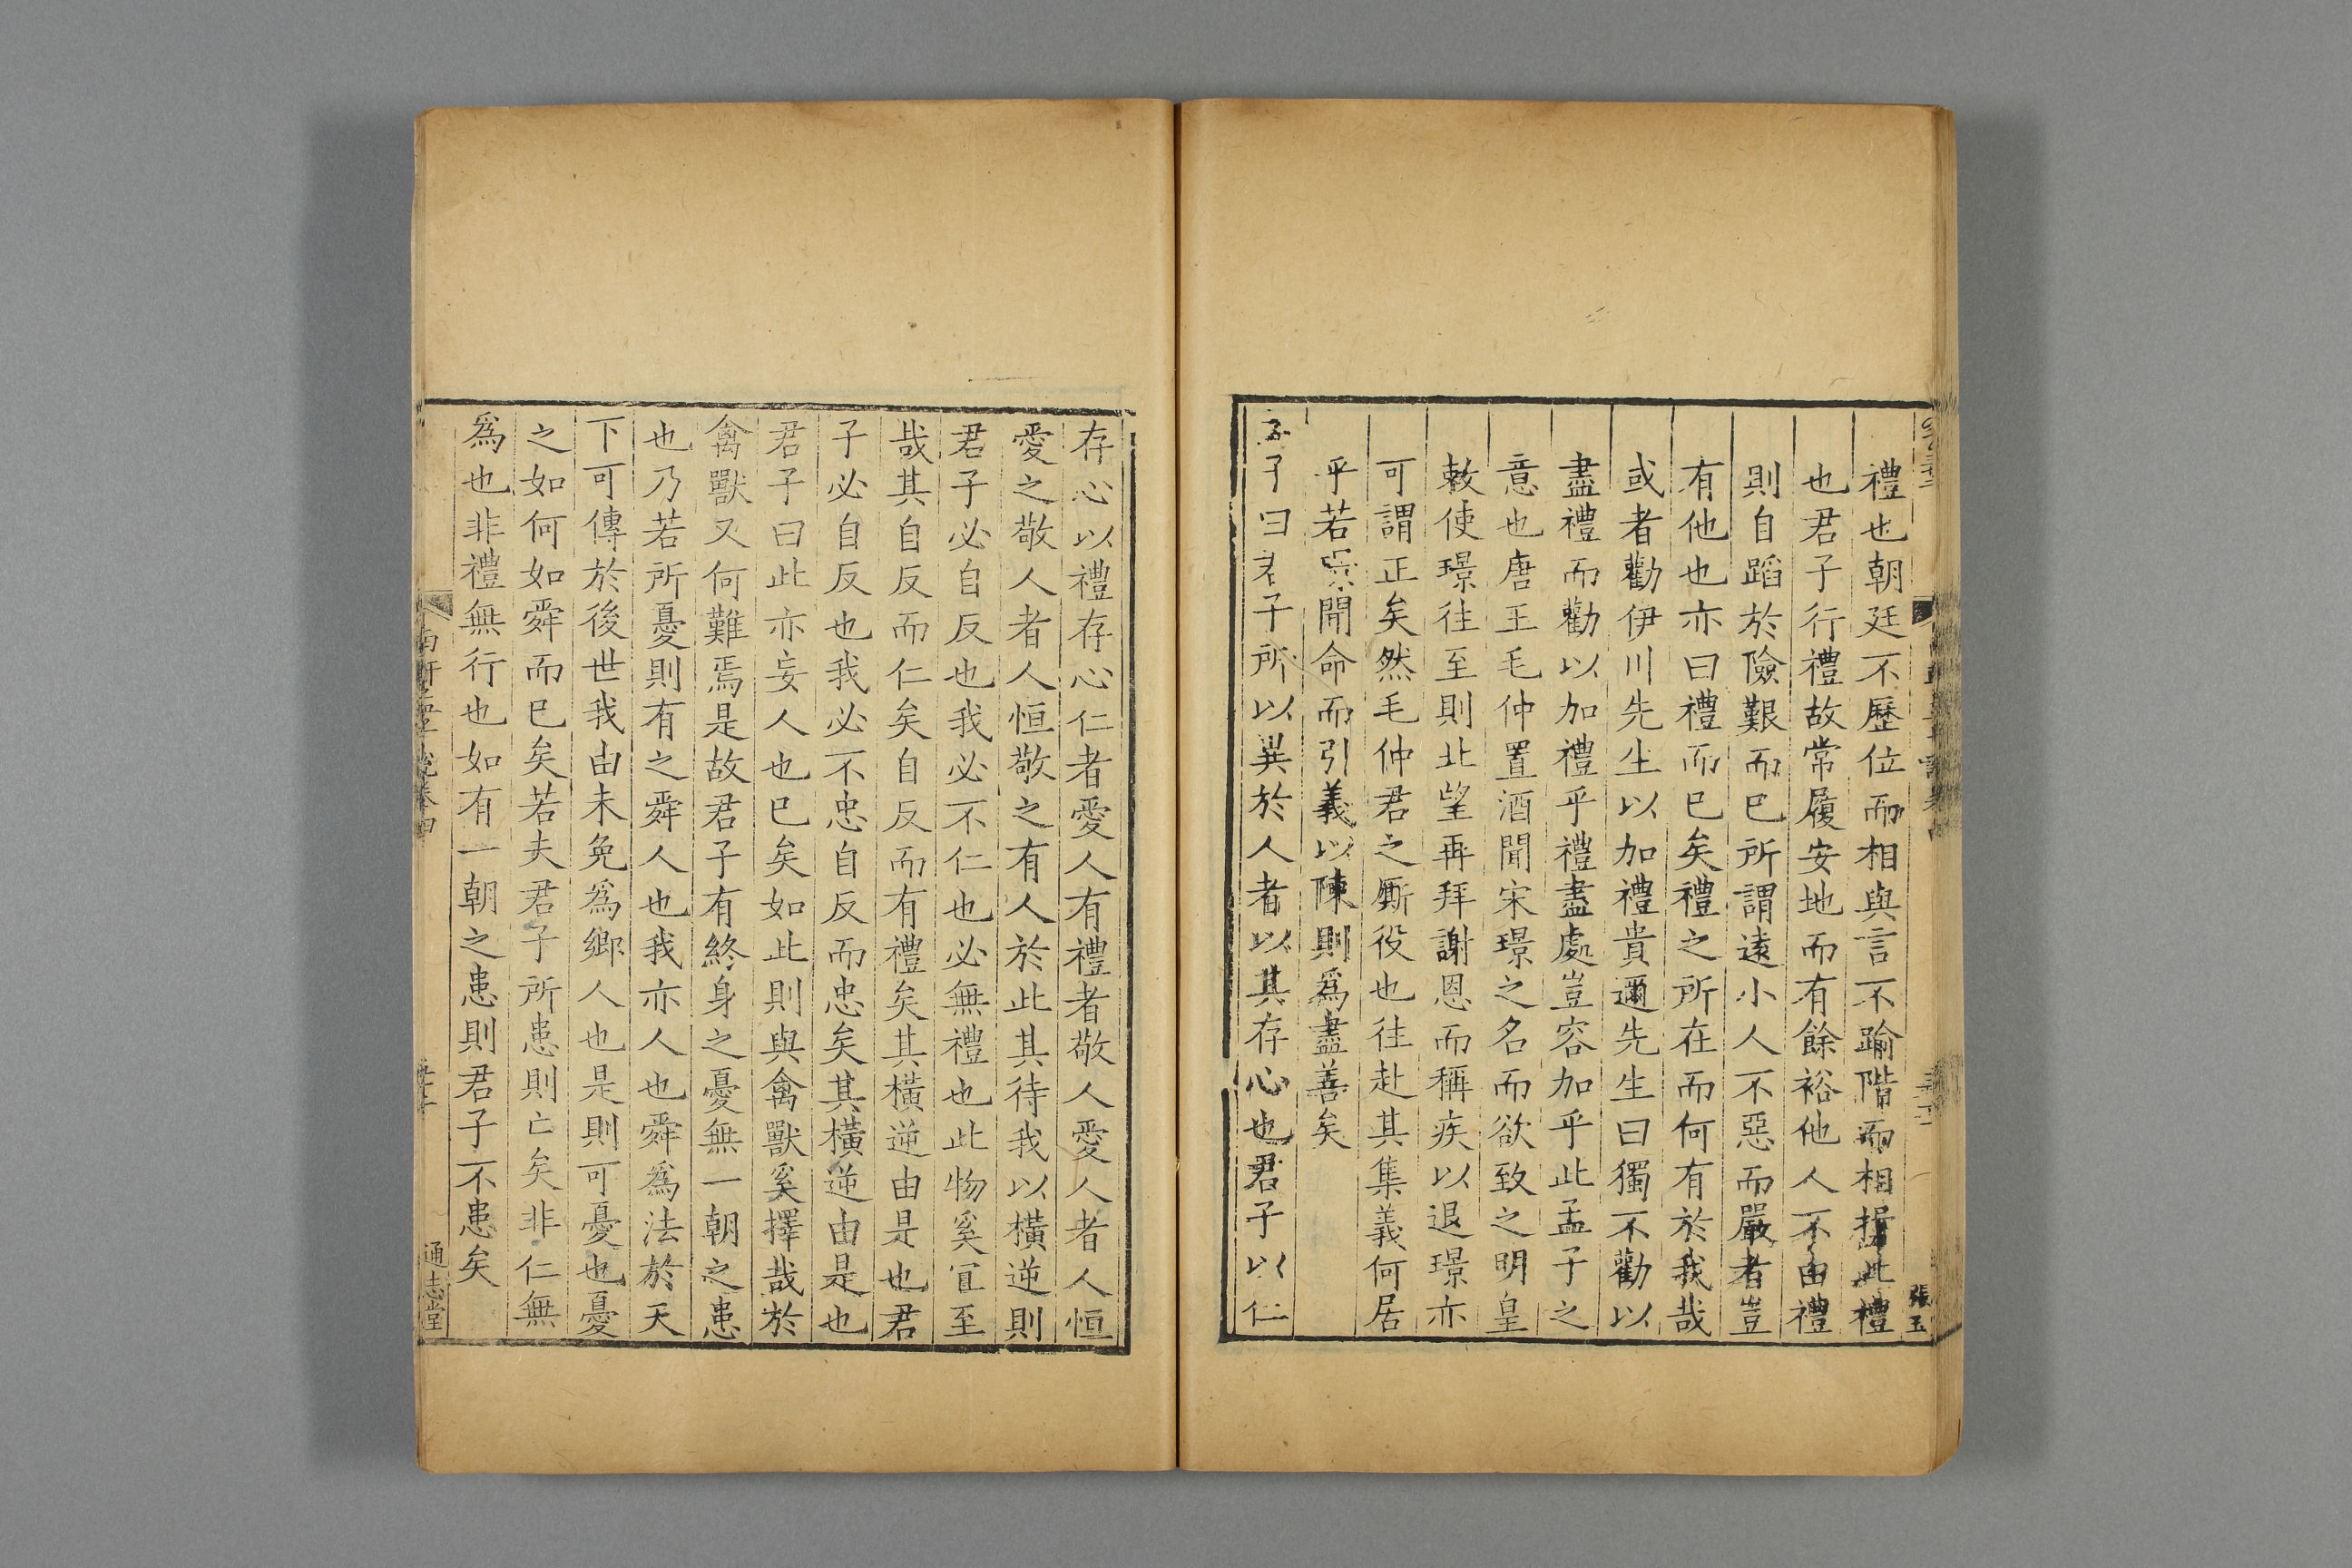 禮也朝廷不歷位而相與言不踰階而相揖此禮
也君子行禮故常履安地而有餘裕他人不由禮
則自蹈於險艱而已所謂遠小人不惡而嚴者豈
有他也亦曰禮而已矣禮之所在而何有於我哉
或者勸伊川先生以加禮貴邇先生曰獨不勸以
盡禮而勸以加禮乎禮盡處豈容加乎此孟子之
意也唐王毛仲置酒聞宋璟之名而欲致之明皇
敕使璟往至則北望再拜謝恩而稱疾以退璟亦
可謂正矣然毛仲君之厮役也往赴其集義何居
乎若宋聞命而引義以陳則爲盡善矣
孟子曰君子所以異於人者以其存心也君子以仁
張玉
存心以禮存心仁者愛人有禮者敬人愛人者人恒
愛之敬人者人恒敬之有人於此其待我以橫逆則
君子必自反也我必不仁也必無禮也此物奚宜至
哉其自反而仁矣自反而有禮矣其橫逆由是也君
子必自反也我必不忠自反而忠矣其橫逆由是也
君子曰此亦妄人也已矣如此則與禽獸奚擇哉於
禽獸又何難焉是故君子有終身之憂無一朝之患
也乃若所憂則有之舜人也我亦人也舜爲法於天
下可傳於後世我由未免爲鄉人也是則可憂也憂
之如何如舜而已矣若夫君子所患則亡矣非仁無
爲也非禮無行也如有一朝之患則君子不患矣
南軒孟子說卷四
通志堂